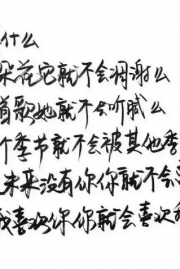 什么
朵花它就不会凋谢么
首歌她就不会听腻么
个季节就不会被其他季
未来没有你你就不会
我喜欢你你就会喜欢